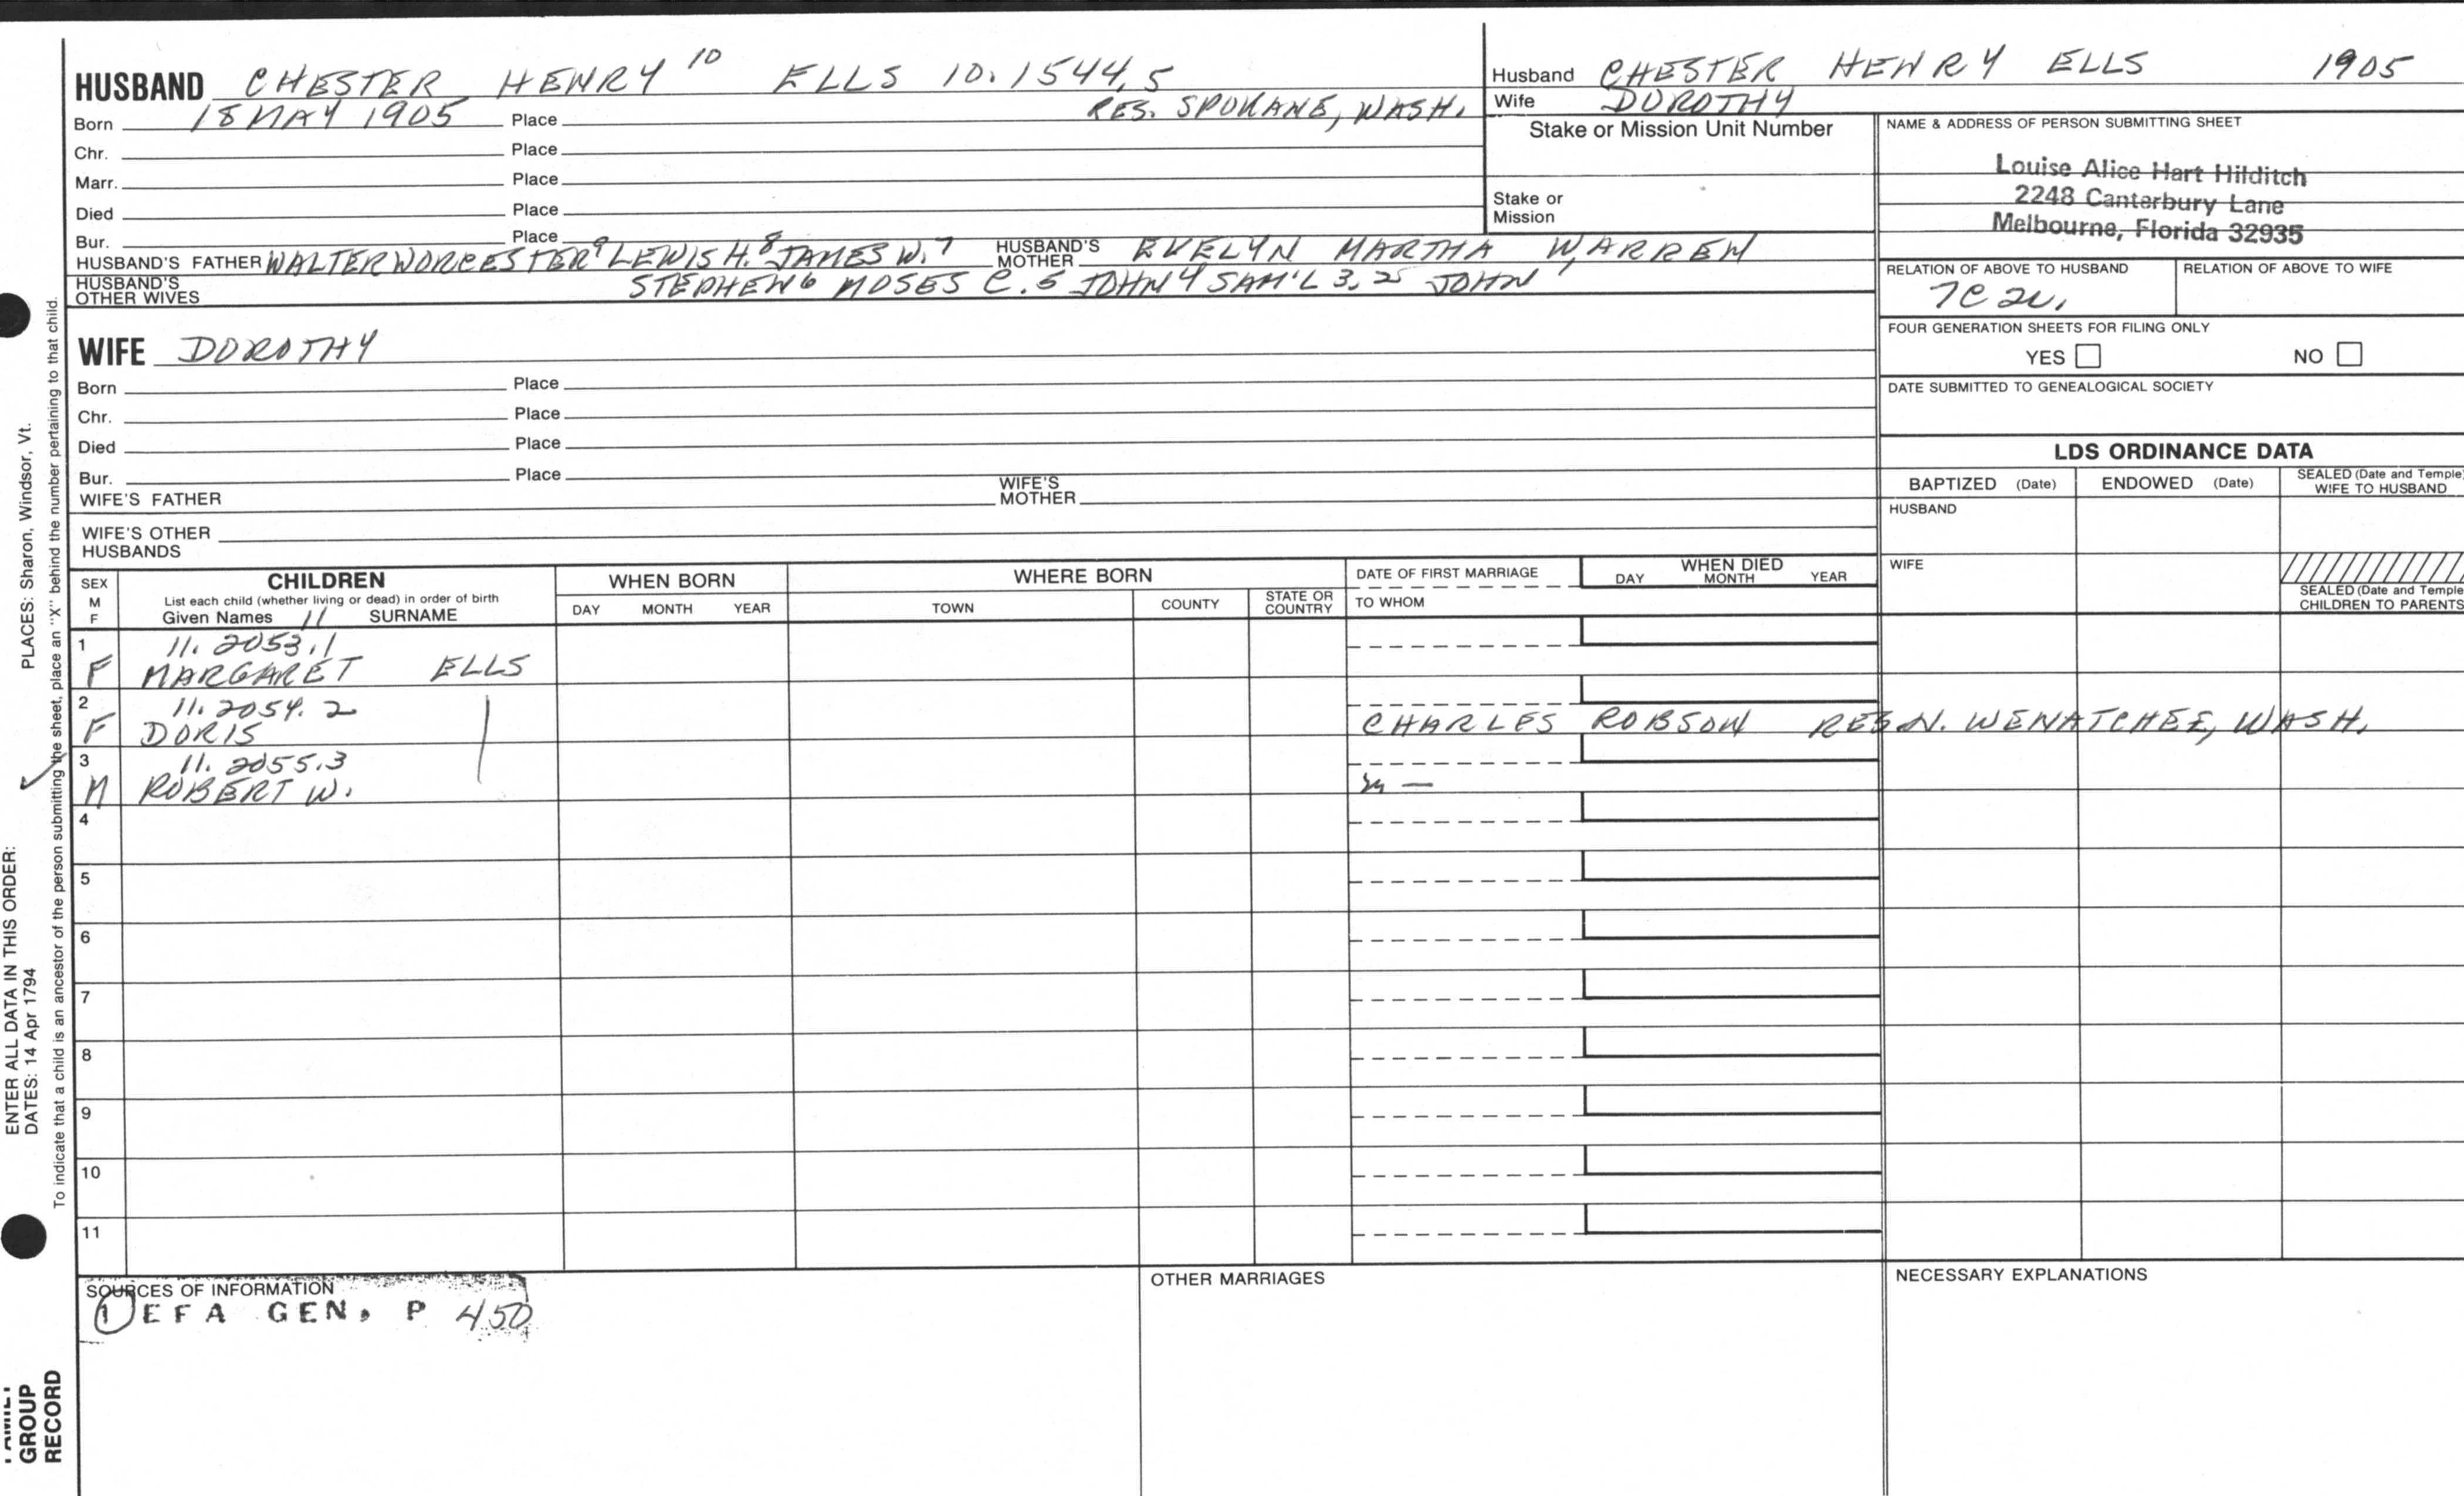 HUSBAND CHESTER HENRY 10 ELLS 10.1544.5
Born 18 MAY 1905 Place RES. SPOKANE, WASH.
Chr. Place
Marr. Place
Died Place
Bur. Place
HUSBAND'S FATHER WALTER WORCESTER 9 LEWIS H. 8 JAMES W. 7 HUSBAND'S MOTHER EVELYN MARTHA WARREN
HUSBAND'S OTHER WIVES STEPHEN 6 MOSES C. 5 JOHN 4 SAM'L 3, 2 JOHN 1
Husband CHESTER HENRY ELLS 1905
Wife DOROTHY
Stake or Mission Unit Number
Stake or
Mission
NAME & ADDRESS OF PERSON SUBMITTING SHEET
Louise Alice Hart Hilditch
2248 Canterbury Lane
Melbourne, Florida 32935
RELATION OF ABOVE TO HUSBAND RELATION OF ABOVE TO WIFE
7C 2
FOUR GENERATION SHEETS FOR FILING ONLY
YES NO
DATE SUBMITTED TO GENEALOGICAL SOCIETY
WIFE DOROTHY
Born Place
Chr. Place
Died Place
Bur. Place
WIFE'S FATHER WIFE'S MOTHER
WIFE'S OTHER
HUSBANDS
LDS ORDINANCE DATA
BAPTIZED (Date) ENDOWED (Date) SEALED (Date and Temple) WIFE TO HUSBAND
HUSBAND
WIFE
SEALED (Date and Temple
CHILDREN TO PARENTS
SEX
M
F
CHILDREN
List each child (whether living or dead) in order of birth
Given Names 11 SURNAME
WHEN BORN
DAY MONTH YEAR
WHERE BORN
TOWN COUNTY STATE OR COUNTRY
DATE OF FIRST MARRIAGE
TO WHOM
WHEN DIED
DAY MONTH YEAR
1 11.2053.1
F MARGARET ELLS
2 11.2054.2
F DORIS CHARLES ROBSON RES N. WENATCHEE, WASH.
3 11.2055.3
M ROBERT W. m —
4
5
6
7
8
9
10
11
SOURCES OF INFORMATION
1 EFA GEN, P 450
OTHER MARRIAGES
NECESSARY EXPLANATIONS
PLACES: Sharon, Windsor, Vt.
ENTER ALL DATA IN THIS ORDER:
DATES: 14 Apr 1794
To indicate that a child is an ancestor of the person submitting the sheet, place an "X" behind the number pertaining to that child.
GROUP
RECORD